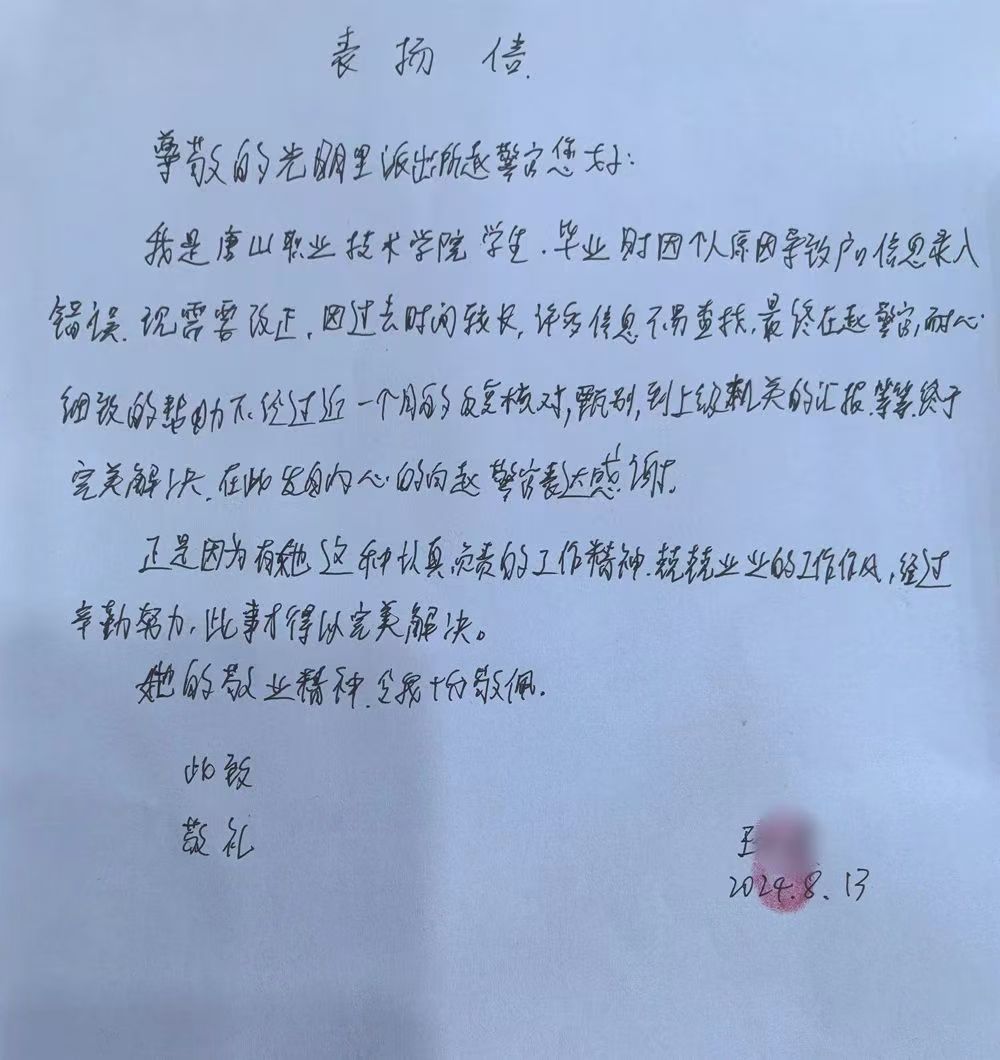 表扬信
尊敬的光明里派出所赵警官您好:
我是唐山职业技术学院学生.毕业时因个人原因导致户口信息录入
错误.现需要改正.因过去时间较长,许多信息不易查找,最终在赵警官,耐心
细致的帮助下.经过近一个月的反复核对,甄别,到上级机关的汇报.等等.终于
完美解决.在此发自内心的向赵警官表达感谢.
正是因为有她这种认真负责的工作精神.兢兢业业的工作作风,经过
辛勤努力.此事才得以完美解决。
她的敬业精神.令我十分敬佩.
此致
敬礼
王
2024.8.13